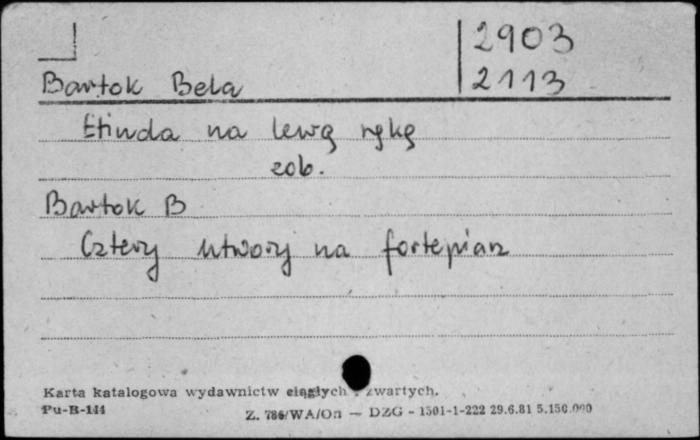 2903
2113
Bartok Bela
Etiuda na lewą rękę
zob.
Bartok B
Cztery utwory na fortepian
Karta katalogowa wydawnictw ciągłych i zwartych.
Pu-B-144
Z. 786/WA/On — DZG - 1501-1-222 29.6.81 5.150.000